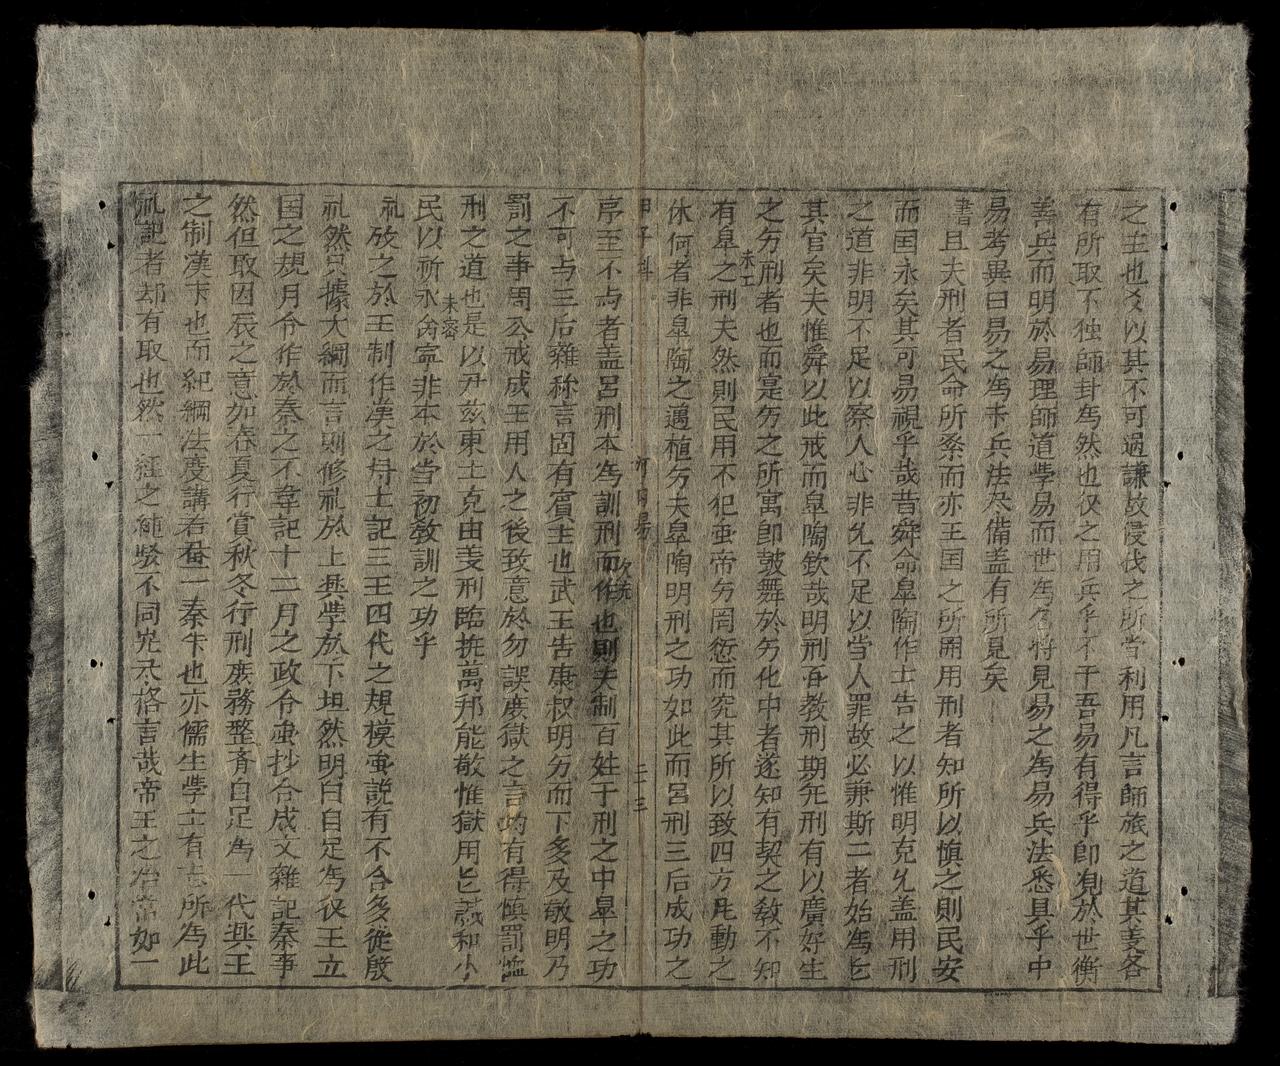 之主也爻以其不可過謙故侵伐之所当利用凡言師旅之道其姜各
有所取不独師卦為然也仅之用兵乎不干吾易有得乎即見於世衡
善兵而明於易理師道孛易而世為名将見易之為易兵法悉具乎中
易考異曰易之為卞兵法尽備盖有所見矣
書且夫刑者民命所系而亦王国之所用刑者知所以慎之則民安
而囯永矣其可易視乎哉昔舜命皐陶作士告之以惟明克允盖用刑
之道非明不足以察人心非允不足以当人罪故必兼斯二者始為
其官矣夫惟舜以此戒而皐陶欽哉明刑教刑期死刑有以廣好生
之刑者也而寔之所寓卽鼓舞於化中者遂知有契之敎不知
未工
有皐之刑夫然則民用不犯蚩帝罔愆而究其所以致四方動之
休何者非皐陶之邁植夫皐陶明刑之功如此而呂刑三后成功之
甲子科
河内場
二十三
序至不与者盖呂刑本為訓刑而作也則夫制百姓于刑之中皐之功
不可与三后雜称言固有賓主也武王告康叔明而下多及敬明乃
罰之事周公戒成王用人之後致意於勿誤庶獄之言均有得慎罰恤
刑之道也是以尹玆東土克由姜刑臨撫萬邦能敬惟獄用諴和小
未密
民以祈永命寧非本於当初敎訓之功乎
礼攷之於王制作漢之舟士記三王四代之規模説有不合多従殷
礼然只據大綱而言則修礼於上典孛於下坦然明白自足為仅王立
囯之規月令作於秦之不韋記十二月之政令抄合成文雜記秦事
然但取因辰之意如春夏行賞秋冬行刑庶務整斉自足為一代典王
之制漢卞也而紀綱法度講若一秦卞也亦儒生孛士有志所為此
礼記者却有取也然一経之純駁不同格言哉帝王之治當如一